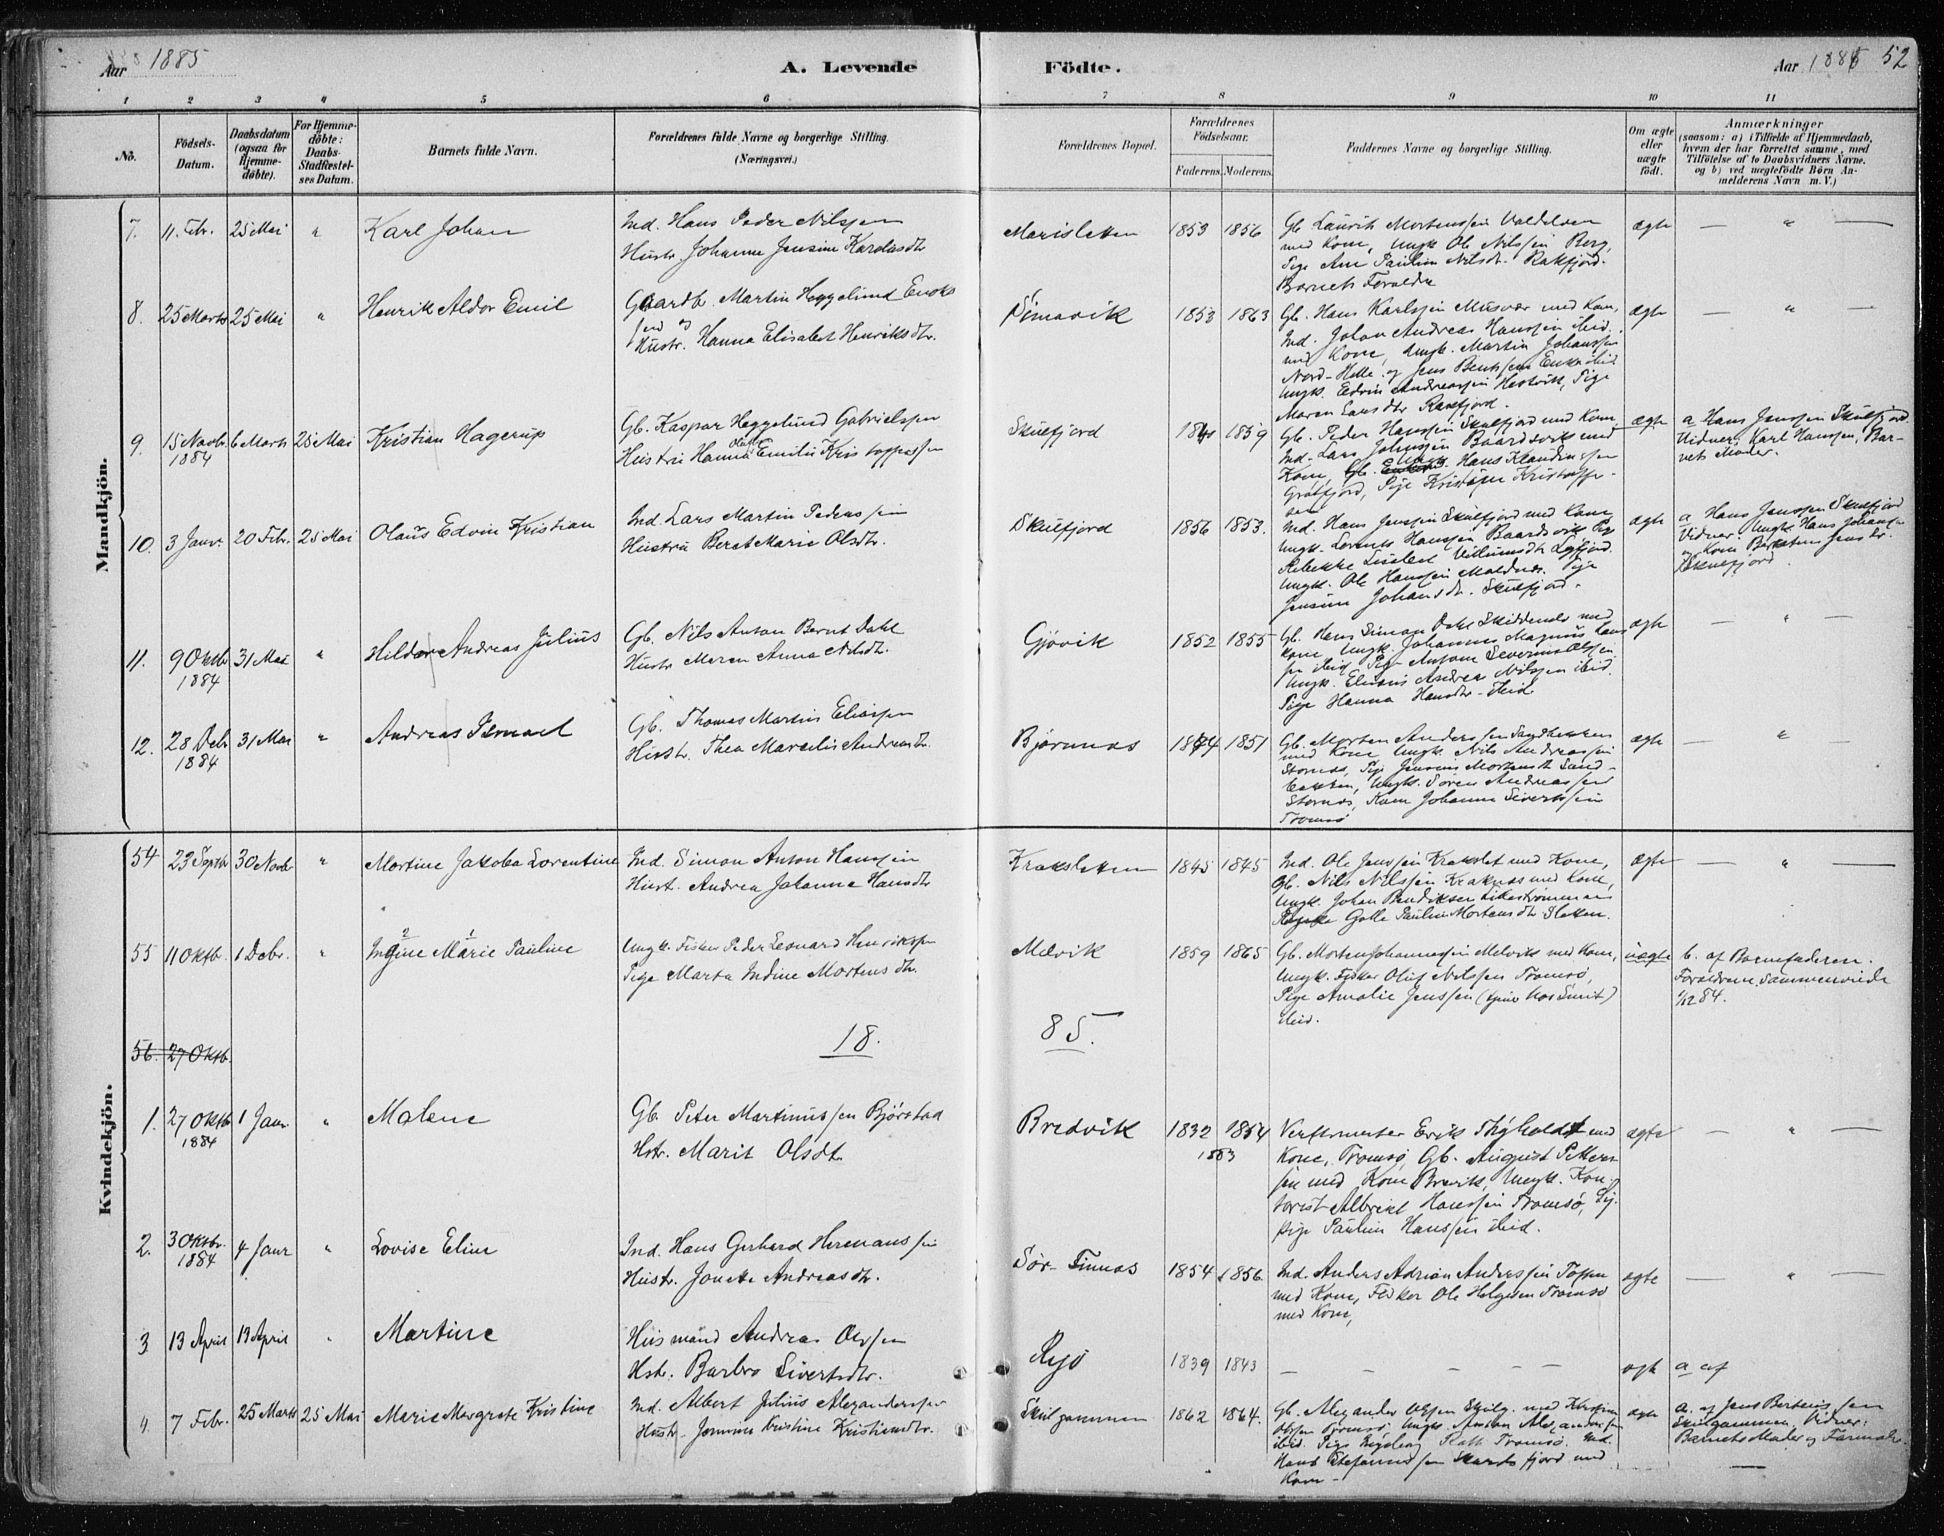 Aar 1885
A. Levende
Fødte.
Aar 1885 52
1 2 3 4 5 6 7 8 9 10 11
No.
Fødsels-Datum.
Daabsdatum (ogsaa for Hjemme-døbte).
For Hjemme-døbte: Daabs-Stadfæstel-ses Datum.
Barnets fulde Navn.
Forældrenes fulde Navne og borgerlige Stilling.
(Næringsvei.)
Forældrenes Bopæl.
Forældrenes Fødselsaar.
Faderens. Moderens.
Faddernes Navne og borgerlige Stilling.
Om ægte eller uægte født.
Anmærkninger
(saasom: a) i Tilfælde af Hjemmedaab,
hvem der har forrettet samme, med
Tilføielse af to Daabsvidners Navne.
og b) ved uægtefødte Børn An-
melderens Navn m. V.)
Mandkjön.
7. 11. Febr. 25 Mai " Karl Johan
Ind. Hans Peder Nilssen
Hustr. Johanna Jensine Karolusdtr
1853 1856
Gb. Laurits Mortenssen
med Kone, Ungk. Ole Nilssen Berg,
Pige Ane Pauline Nilsdtr. Rakfjord.
Barnets Forældre
ægte — " —
8. 25 Marts 25 Mai " Henrik Aldor Emil
Gaardb. Martin Heggelund Enoks
sen og
Hustr. Hanna Elisabet Henriksdtr.
Simavik 1853 1863
Gb. Hans Karlssen Musvær med Kone,
Ind. Johan Andreas Hanssen ibid.
med Kone, Ungk. Martin Johanssen
Nord-Helle og Jens Enokssen ibid
Ungk. Edvin Andreassen Pige
Maren Larsdtr Rakfjord.
ægte — " —
9. 15 Novb. 1884 6 Marts 25 Mai Kristian Hagerup
Gb. Kaspar Heggelund Gabrielssen
Hustru Hanna Emilie Kristoffersen
Skulfjord 1859
Gb. Peder Hanssen Skulfjord med Kone,
Ind. Lars Johnssen Baardsvik med
Kone, Ungk. Hans Klaudiussen
Grøtfjord, Pige Kristoffer-
sen
ægte
a. Hans Jenssen Skulfjord.
Vidner: Karl Hanssen, Bar-
nets Moder.
10. 3 Janr. 20 Febr. 25 Mai Olaus Edvin Kristian
Ind. Lars Martin Pederssen
Hustru Beret Marie Olsdtr.
Skulfjord 1856 1853.
Ind. Hans Jenssen Skulfjord med Kone
Ungk. Lorents Hanssen Baardsvik Pig
Rebekka Lisabet Villumsdtr
Ungk. Ole Hanssen Pige
Jensine Johansdtr. Skulfjord.
ægte
a Hans Jenssen Skulfjord
Vidner: Ungk Hans Johans-
Kone
Skulfjord.
11. 9 Oktb. 1884 31 Mai " Hildor Andreas Julius
Gb. Nils Anton Bernt Dahl
Hustr Maren Anna Nilsdtr.
Gjøvik 1852 1855
Gb. Hans Simon Dahl Skiddenes med
Kone, Ungk. Johannes Magnus Hans
sen ibid, Pige Antone Severine Olssen
Ungk. Elisius Andreas Nilssen ibid.
Pige Hanna Hansdtr. ibid
ægte — " —
12. 28 Debr. 1884 31 Mai " Andreas Ismael
Gb. Thomas Martin Eliassen
Hustr. Thea Marselie Andreasdtr.
Bjørnnæs 1851
Gb. Morten Anderssen
med Kone, Ungk. Nils Andreassen
Stornæs, Pige Jensine Mortensdtr Sand-
bakken, Ungk. Søren Andreassen
Stornæs, Kone Johanna Sivertssen
Tromsø
ægte — " —
Kvindekjön.
54 23 Septbr 30 Novb " Martine Jakoba Lorentine
Ind. Simon Anton Hanssen
Hust. Andrea Johanna Hansdtr
Kraksletten 1845 1845
Ind. Ole Jenssen Krakslet med Kone,
Gb. Nils Nilssen Kraknæs med Kone,
Ungk. Johan Bendiksen
Golle Pauline Mortensdtr Sletten.
ægte — " —
55 11 Oktb. 1 Debr. " Ingine Marie Pauline
Ungk. Fisker Peder Leonard Henrikssen
Pige Marta Indine Mortensdtr.
Mælvik 1859 1865
Gb. Morten Johannessen Mælvik med Kone,
Ungk. Fisker Oluf Nilssen Tromsø,
Pige Amalie Jenssen
ibid.
uægte
b. af Barnefaderen.
Forældrene sammenviede
84.
56. 27 Oktb.
18. 85.
1. 27 Oktb 1884 1 Janr " Malene
Gb. Peter Martinussen Bjørstad
Hstr. Marit Olsdtr.
Bredvik 1832 1854
1853
Verftsmester Erik Thyholdt med
Kone, Tromsø, Gb. August Petters-
sen med Kone Brevik, Ungk. Kon-
torist Albrikt Hanssen Tromsø,
Pige Pauline Hanssen ibid.
ægte — " —
2. 30 Oktbr. 1884 4 Janr " Lovise Eline
Ind. Hans Gerhard Hermanssen
Hustr. Jonette Andreasdtr.
Sør-Tinnæs 1854 1856
Ind. Anders Adrian Anderssen
med Kone, Fisker Ole Helgesen Tromsø
med Kone,
ægte — " —
3 13 April 13 April " Martine
Husmand Andreas Olssen
Hstr. Barbro Sivertsdtr.
Ryø 1839 1843 — — — — — ægte a af
4 7 Febr. 25 Marts 25 Mai Marie Margrete Kristine
Ind. Albert Julius Alexanderssen
Hustr. Kristine Kristiansdtr.
Skulgammen 1862 1864.
Gb. Alexander Olssen Skulg. med
Olssen Tromsø, Ungk Anton Alexanderssen
ibid. Pige Ingeborg Tromsø. Ind.
Hans Stefanussen fjord med
Kone —
ægte
a. af Jens Bertheussen
Skulgammen, Vidner:
Barnets Moder og Farmoder.